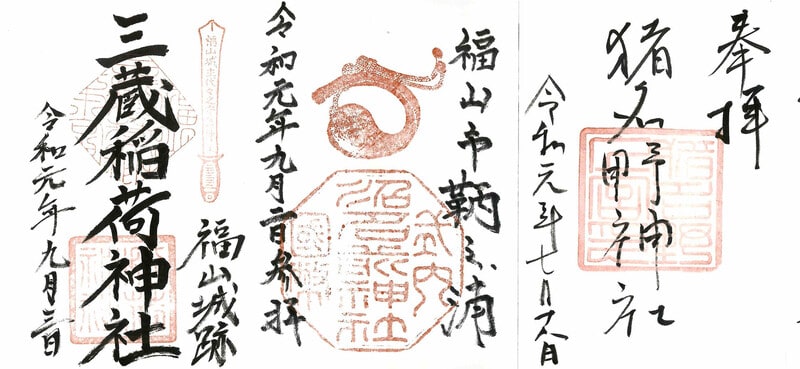 奉拝
猪名野神社
令和元年七月
福山市鞆之浦
式内
神社
令和元年九月二日参拝
福山城跡
三蔵稲荷神社
令和元年九月